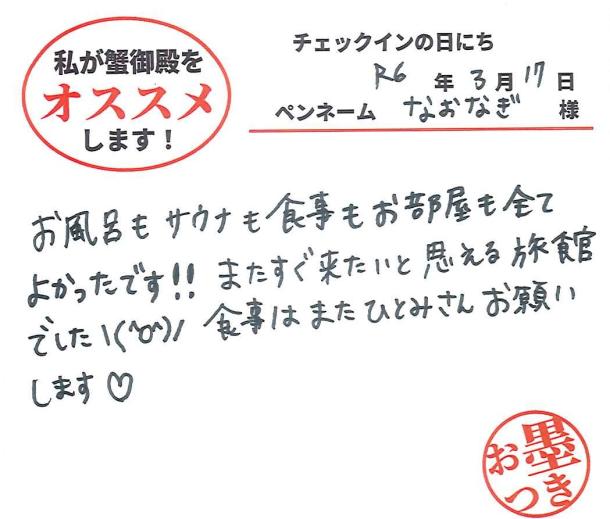 私が蟹御殿を
オススメ
します！
チェックインの日にち
R6 年 3月 17日
ペンネーム なおなぎ 様
お風呂も サウナも 食事も お部屋も 全て
よかったです!! またすぐ来たいと 思える 旅館
でした \(^o^)/ 食事は また ひとみさん お願い
します♡
お墨
つき